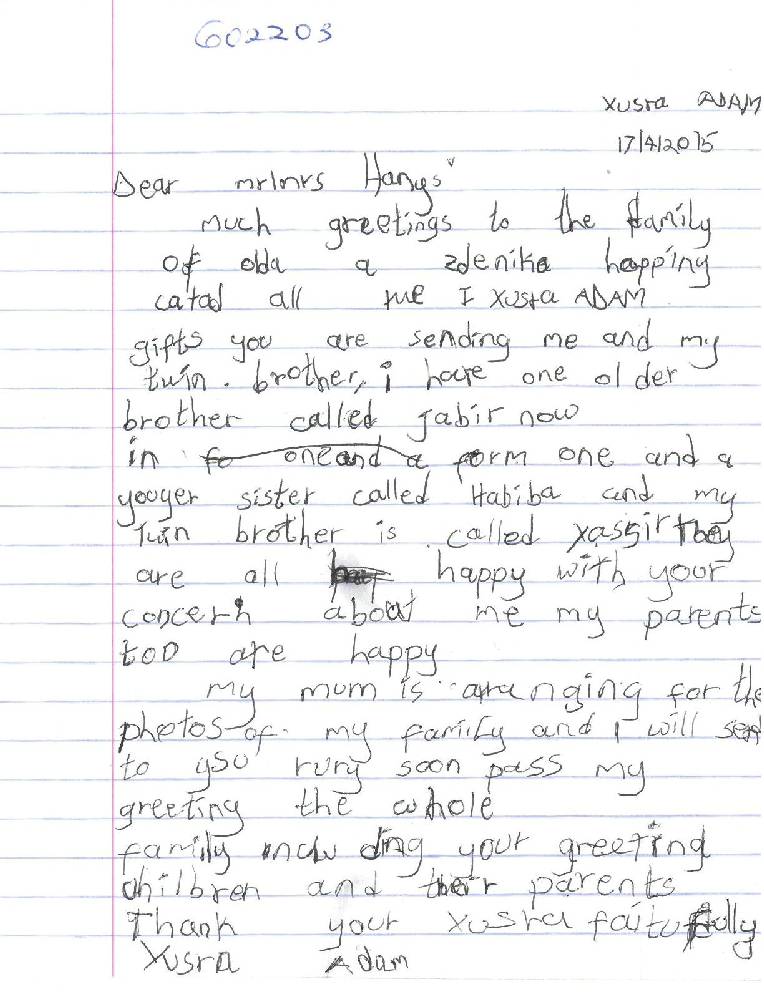 602203
Xusra ADAM
17/4/2015
Dear mr/mrs Hanys
much greetings to the family
of olda a zdenika happing
catad all me I Xusra ADAM
gifts you are sending me and my
twin. brother, i have one older
brother called Jabir now
in fo one and a form one and a
youger sister called Habiba and my
Twin brother is called Yassir They
are all happy with your
concern about me my parents
too are happy
my mum is aranging for the
photos of my family and I will send
to you rury soon pass my
greeting the whole
family including your greeting
chilbren and their parents
Thank your Xusra faitufully
Xusra Adam